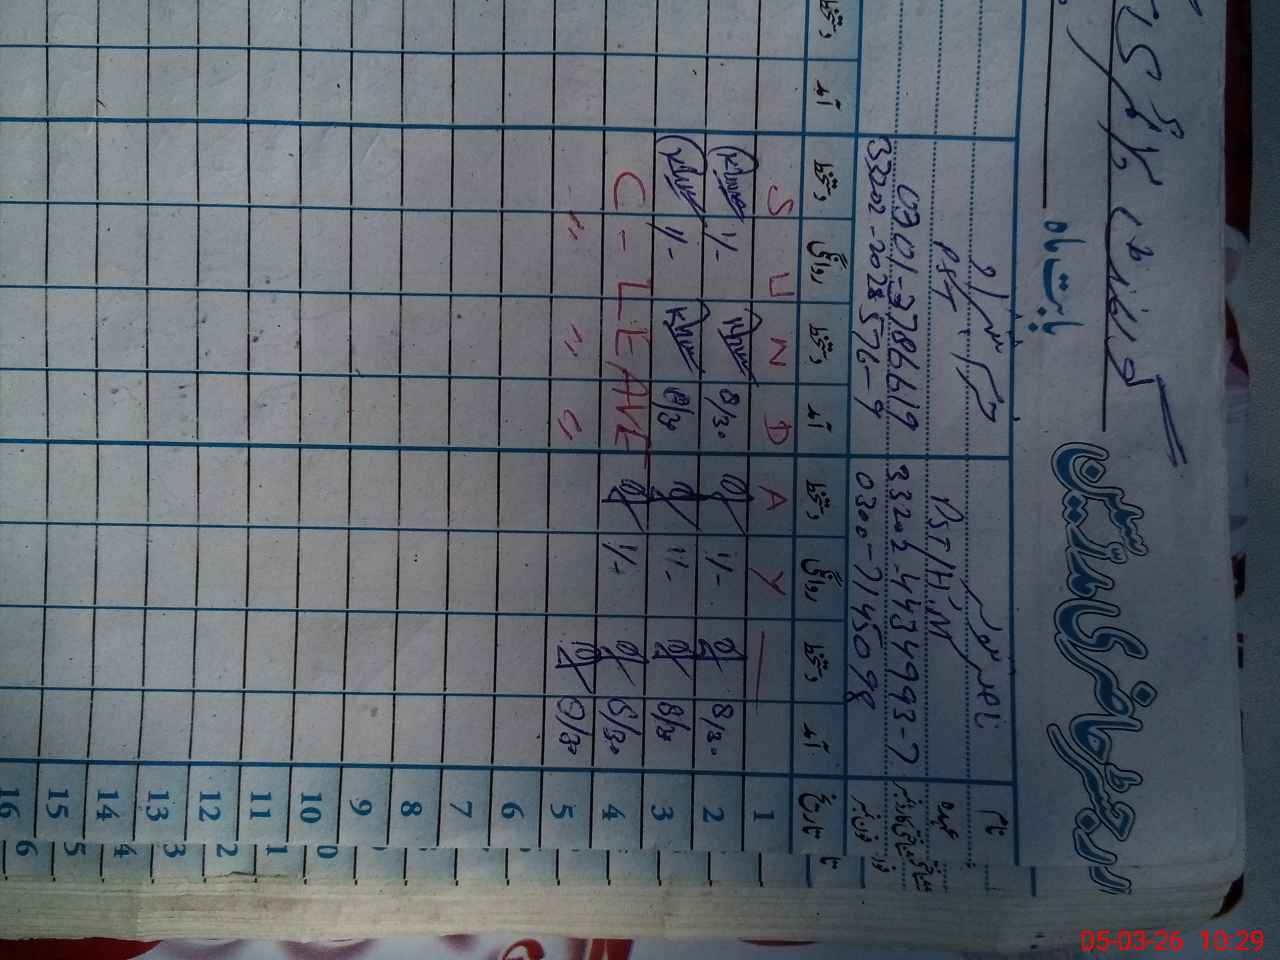 رجسٹر حاضری مدرسین
گورنمنٹ
بابت ماہ
نام
عہدہ
شناختی کارڈ نمبر
فون نمبر
PST/H.M
33203-4434993-7
0300-7145098
PST
0301-3786619
33202-2028576-9
تاریخ آمد دستخط روانگی دستخط آمد دستخط روانگی دستخط آمد دستخط
1 S U N D A Y
2 8/30 1/- 8/30 1/-
3 8/30 1/- 8/30 1/-
4 8/30 1/- C-LEAVE
5 8/30 " " "
6
7
8
9
10
11
12
13
14
15
16
05-03-26 10:29